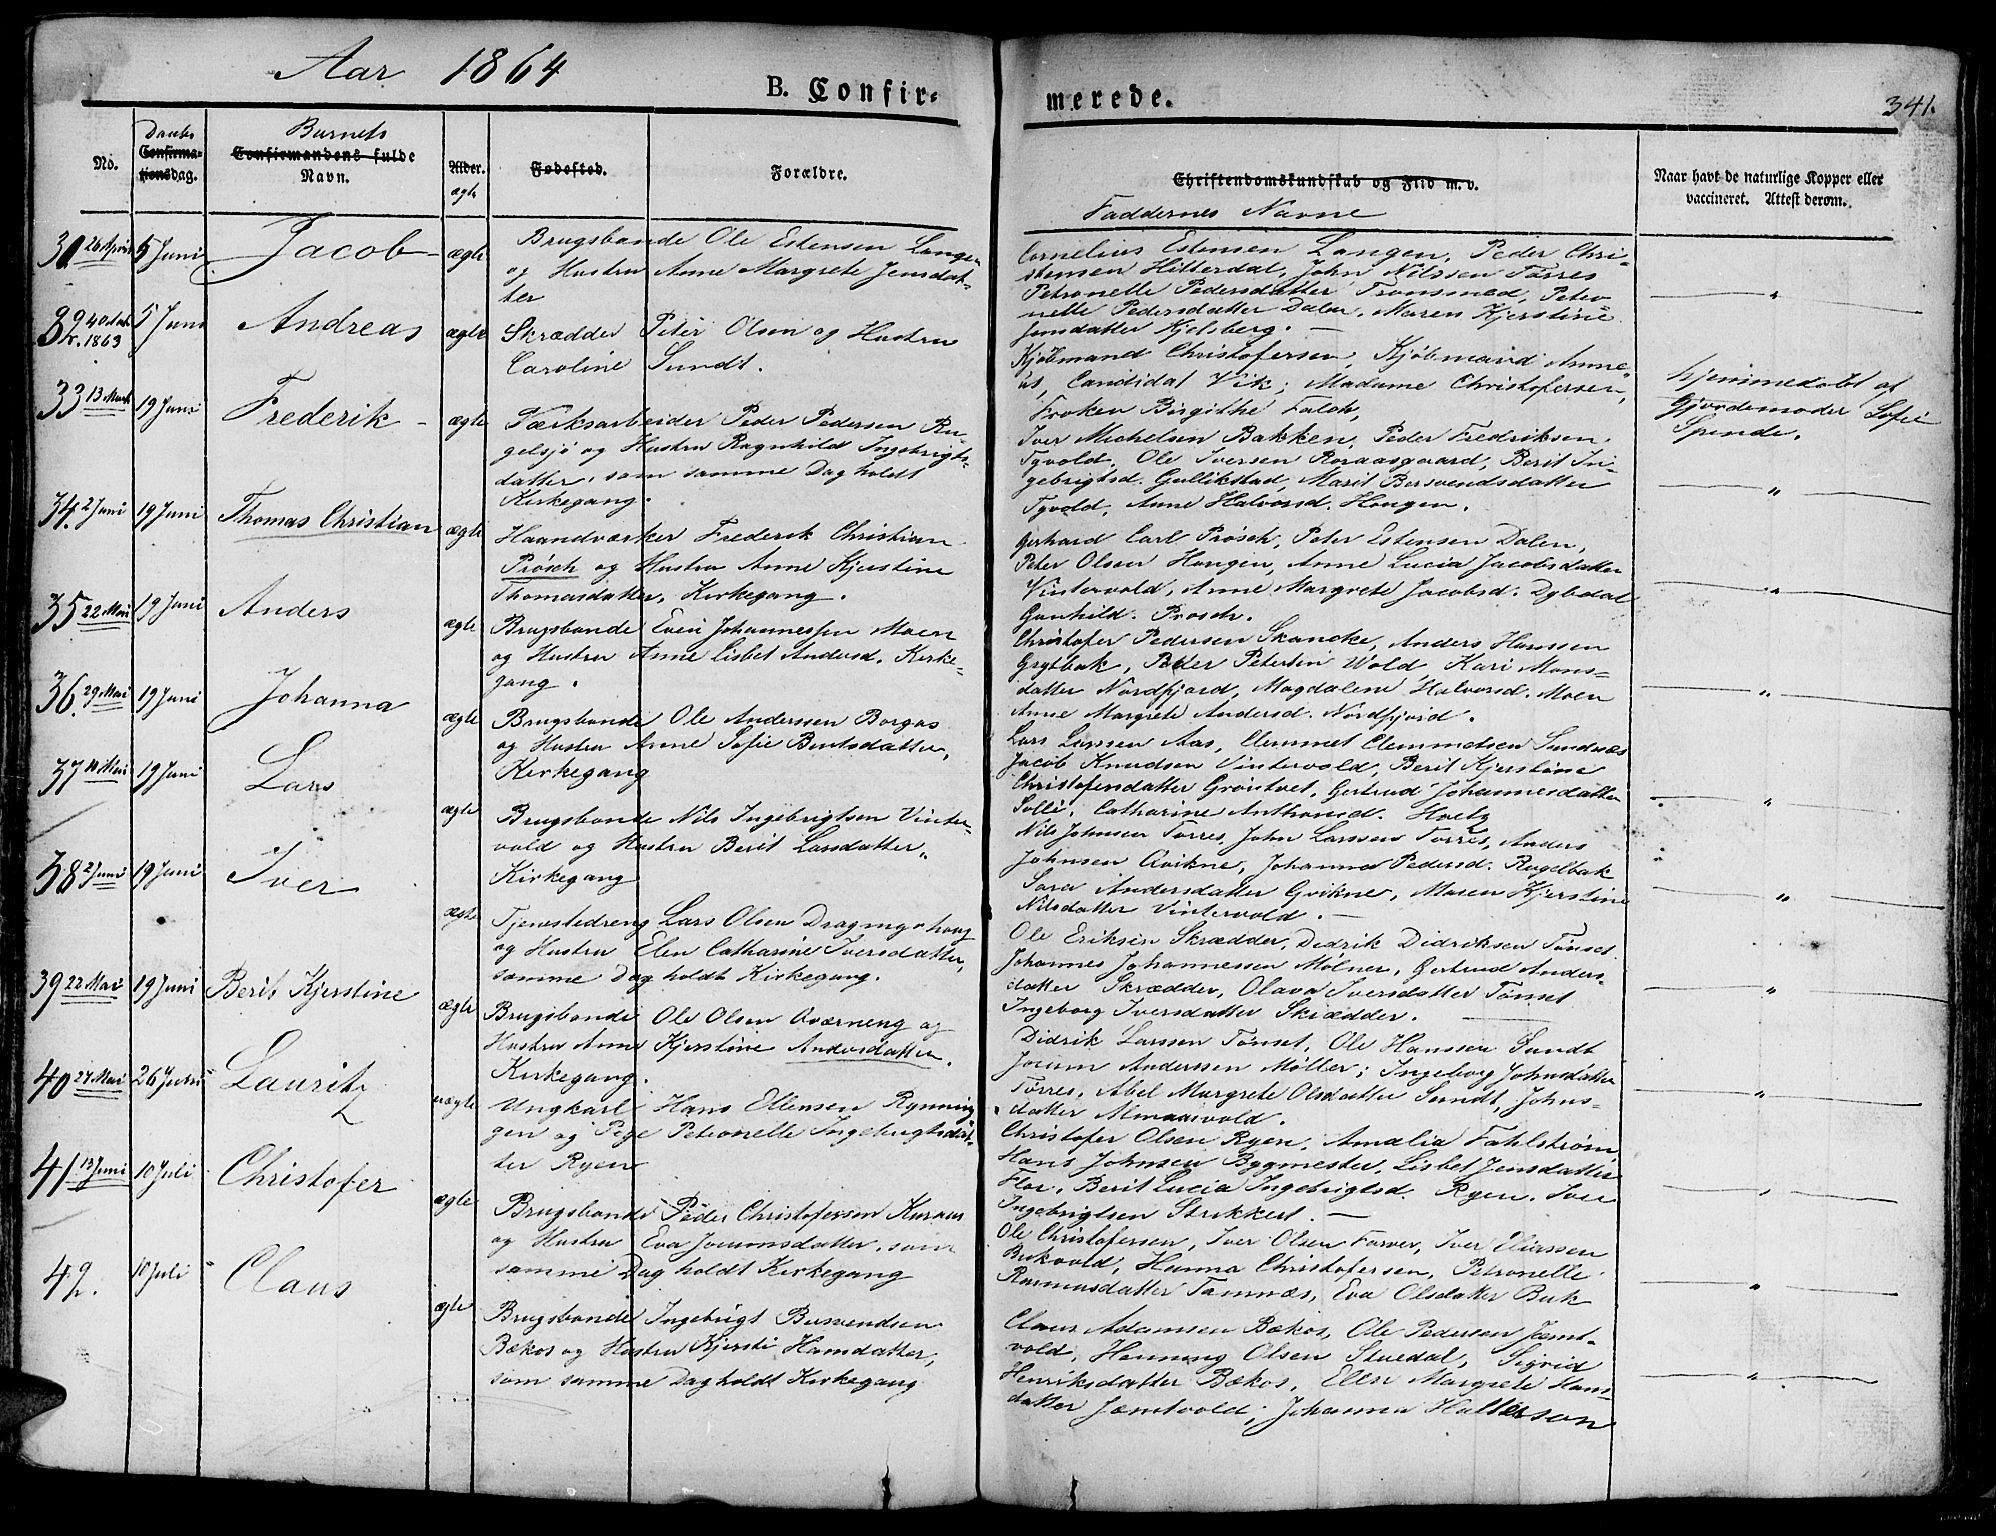 Aar 1864
B. Confir=
merede.
341.
No.
Daabs
Confirma=
tionsdag.
Barnets
Confirmandens fulde
Navn.
Alder.
ægte
Fødested.
Forældre.
Christendomskundskab og Flid m. v.
Faddernes Navne
Naar havt de naturlige Kopper eller
vaccineret. Attest derom.
31 26 April 5 Juni Jacob ægte
Brugsbonde Ole Estensen Langen
og Hustru Anne Margrete Jensdat-
ter
Cornelius Estensen Langen, Peder Chri-
stensen Hitterdal, John Nilssen Torres
Petronelle Pedersdatter Tronsmed, Petro-
nelle Pedersdatter Dalen, Maren Kjerstine
Jensdatter Kjelsberg. —
32 4 Octb. 1863 5 Juni Andreas ægte
Skrædder Peter Olsen og Hustru
Caroline Sundt.
Kjøbmand Christofersen, Kjøbmand Anne-
us, Candidat Vik; Madame Christofersen,
Frøken Birgithe Falch,
hjemmedøbt af
Gjordemoder Sofie
Spende.
33 13 Marts 19 Juni Frederik ægte
Værksarbeider Peder Pedersen Ru-
gelsjø og Hustru Ragnhild Ingebrigts-
datter, som samme Dag holdt
Kirkegang.
Iver Michelsen Bakken, Peder Fredriksen
Tyvold, Ole Iversen Roraasgaard, Berit In-
gebrigtsd. Gullikstad, Marit Bersvendsdatter
Tyvold, Anne Halvorsd. Hongen.
34. 2 Juni 19 Juni Thomas Christian ægte
Haandværker Frederik Christian
Prøsch og Hustru Anne Kjerstine
Thomasdatter, Kirkegang.
Gerhard Carl Prøsch, Peter Estensen Dalen,
Peter Olsen Hongen, Anne Lucia Jacobsdatter
Vintervold, Anne Margrete Jacobsd. Dybdal
Gunhild Prosch.
35 22 Mai 19 Juni Anders ægte
Brugsbonde Even Johannessen Moen
og Hustru Anne Lisbet Andersd. Kirke-
gang.
Christofer Pedersen Skancke, Anders Hanssen
Grytbak, Peder Petersen Wold, Kari Mons-
datter Nordfjord, Magdalene Halvorsd. Moen
Anne Margrete Andersd. Nordfjord.
36. 29 Mai 19 Juni Johanna ægte
Brugsbonde Ole Anderssen Borgos
og Hustru Anne Sofie Bentsdatter,
Kirkegang
Lars Larssen Aas, Clemmet Clemmetsen Sundnæs
Jacob Knudsen Vintervold, Berit Kjerstine
Christofersdatter Grøntvet, Gertrud Johannesdatter
Solli, Catharine Anthonid. Holtz
37 Mai 19 Juni Lars ægte
Brugsbonde Nils Ingebrigtsen Vinter-
vold og Hustru Berit Larsdatter,
Kirkegang
Nils Johnsen Torres, John Larssen Torres, Anders
Johnsen Qvikne, Johanna Pedersd. Rugelbak
Sara Andersdatter Qvikne, Maren Kjerstine
Nilsdatter Vintervold. —
38 2 Juni 19 Juni Iver ægte
Tjenestedreng Lars Olsen
og Hustru Elen Catharine Iversdatter,
samme Dag holdt Kirkegang.
Ole Eriksen Skrædder, Didrik Didriksen Tønset
Johannes Johannessen Mølner, Gertrud Anders-
datter Skrædder, Olava Iversdatter Tønset
Ingeborg Iversdatter Skrædder.
39 22 Mai 19 Juni Berit Kjerstine ægte
Brugsbonde Ole Olsen Qværneng og
Hustru Anne Kjerstine Andersdatter.
Kirkegang.
Didrik Larssen Tønset, Ole Hanssen Sundt
Jocum Anderssen Møller; Ingeborg Johnsdatter
Torres, Abel Margrete Olsdatter Sundt, Johns-
datter Almaasvold.
40 24 Mai 26 Juni Lauritz uægte
Ungkarl Hans Ellensen Rynning
gen og Pige Petronelle Ingebrigtsdat-
ter Ryen
Christofer Olsen Ryen, Amalia Fahlstrøm
Hans Johnsen Bygmester, Lisbet Jensdatter
Flor, Berit Lucia Ingebrigtsd. Ryen. Iver
Ingebrigtsen Strikkert. —
41 13 Juni 10 Juli Christofer ægte
Brugsbonde Peder Christofersen Kuraas
og Hustru Eva Jocumsdatter, som
samme Dag holdt Kirkegang
Ole Christofersen, Iver Olsen Farver, Iver Eliassen
Bukvold, Hanna Christofersen, Petronelle
Rasmusdatter Tamnæs, Eva Olsdatter Buk
42. 10 Juli Claus ægte
Brugsbonde Ingebrigt Bersvendsen
Bækos og Hustru Kjersti Hansdatter,
som samme Dag holdt Kirkegang
Claus Adamsen Bækos, Ole Pedersen Jæmt-
vold, Henning Olsen Stuedal, Sigrid
Henriksdatter Bækos, Elen Margrete Hans-
datter Jæmtvold, Johanna Halterson